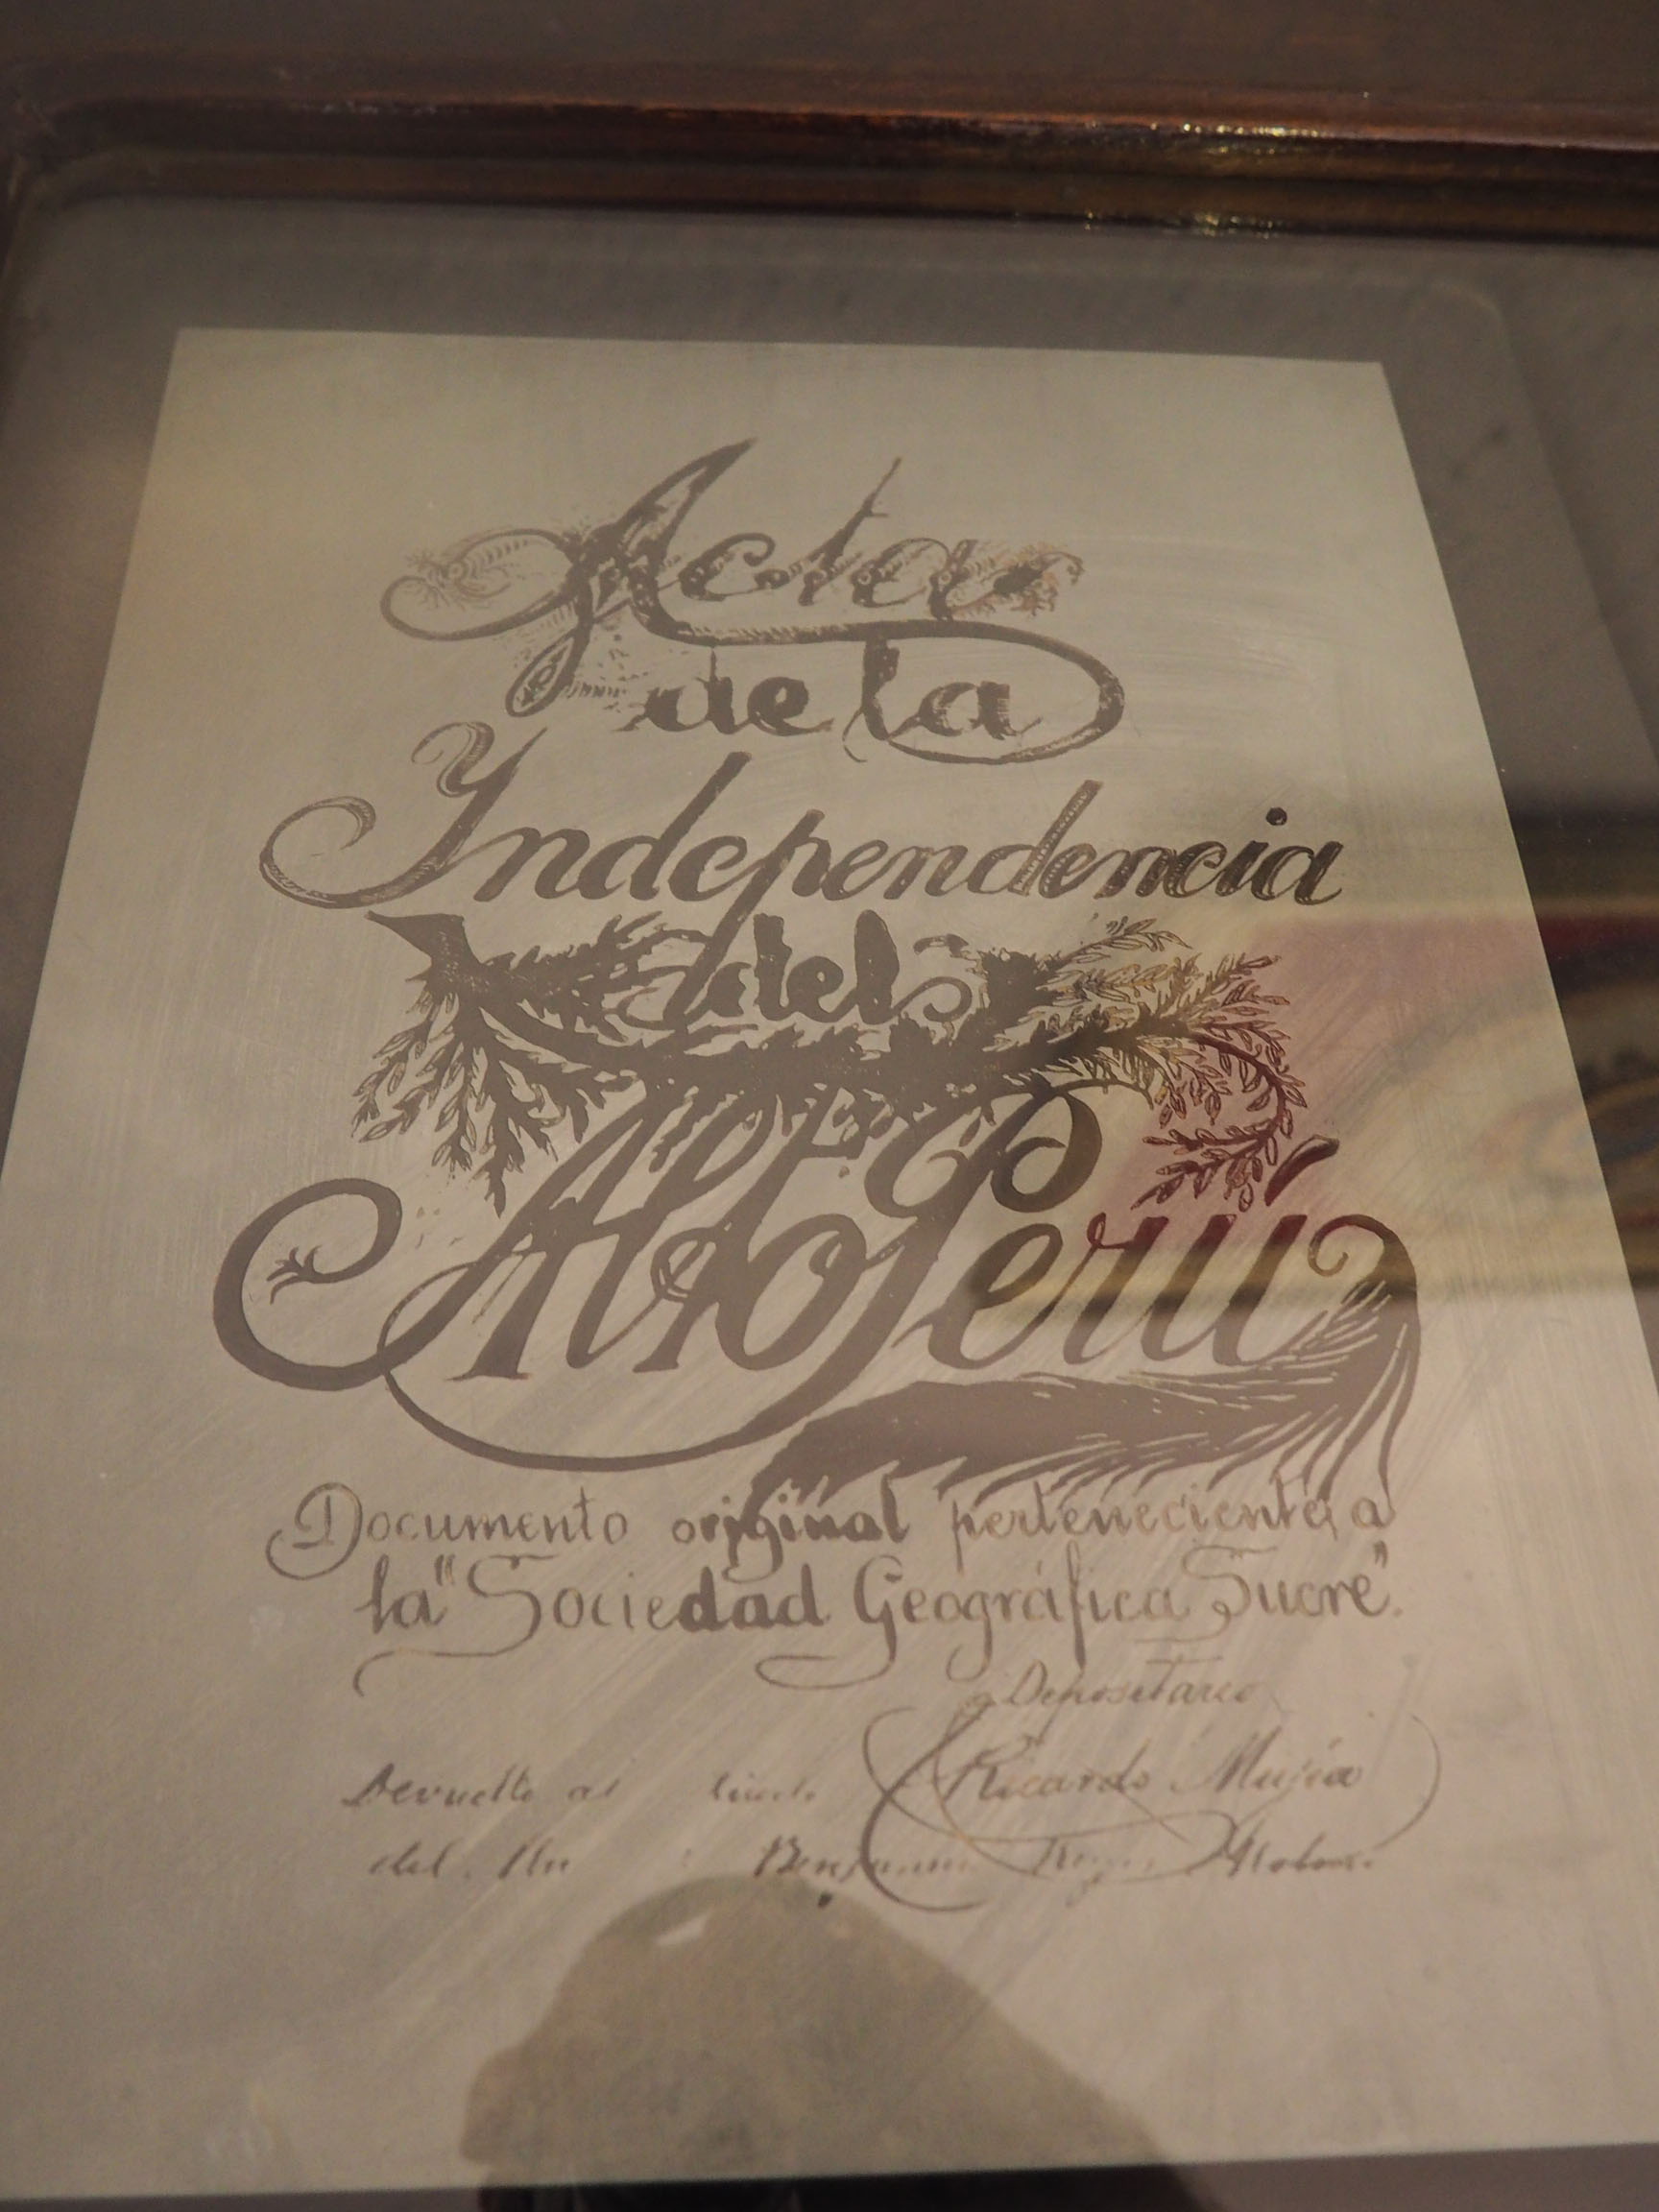 Acta
de la
Independencia
del
Alto Perú
Documento original perteneciente a
la "Sociedad Geográfica Sucre".
Depositario
Ricardo Mujía
Devuelto al
del.